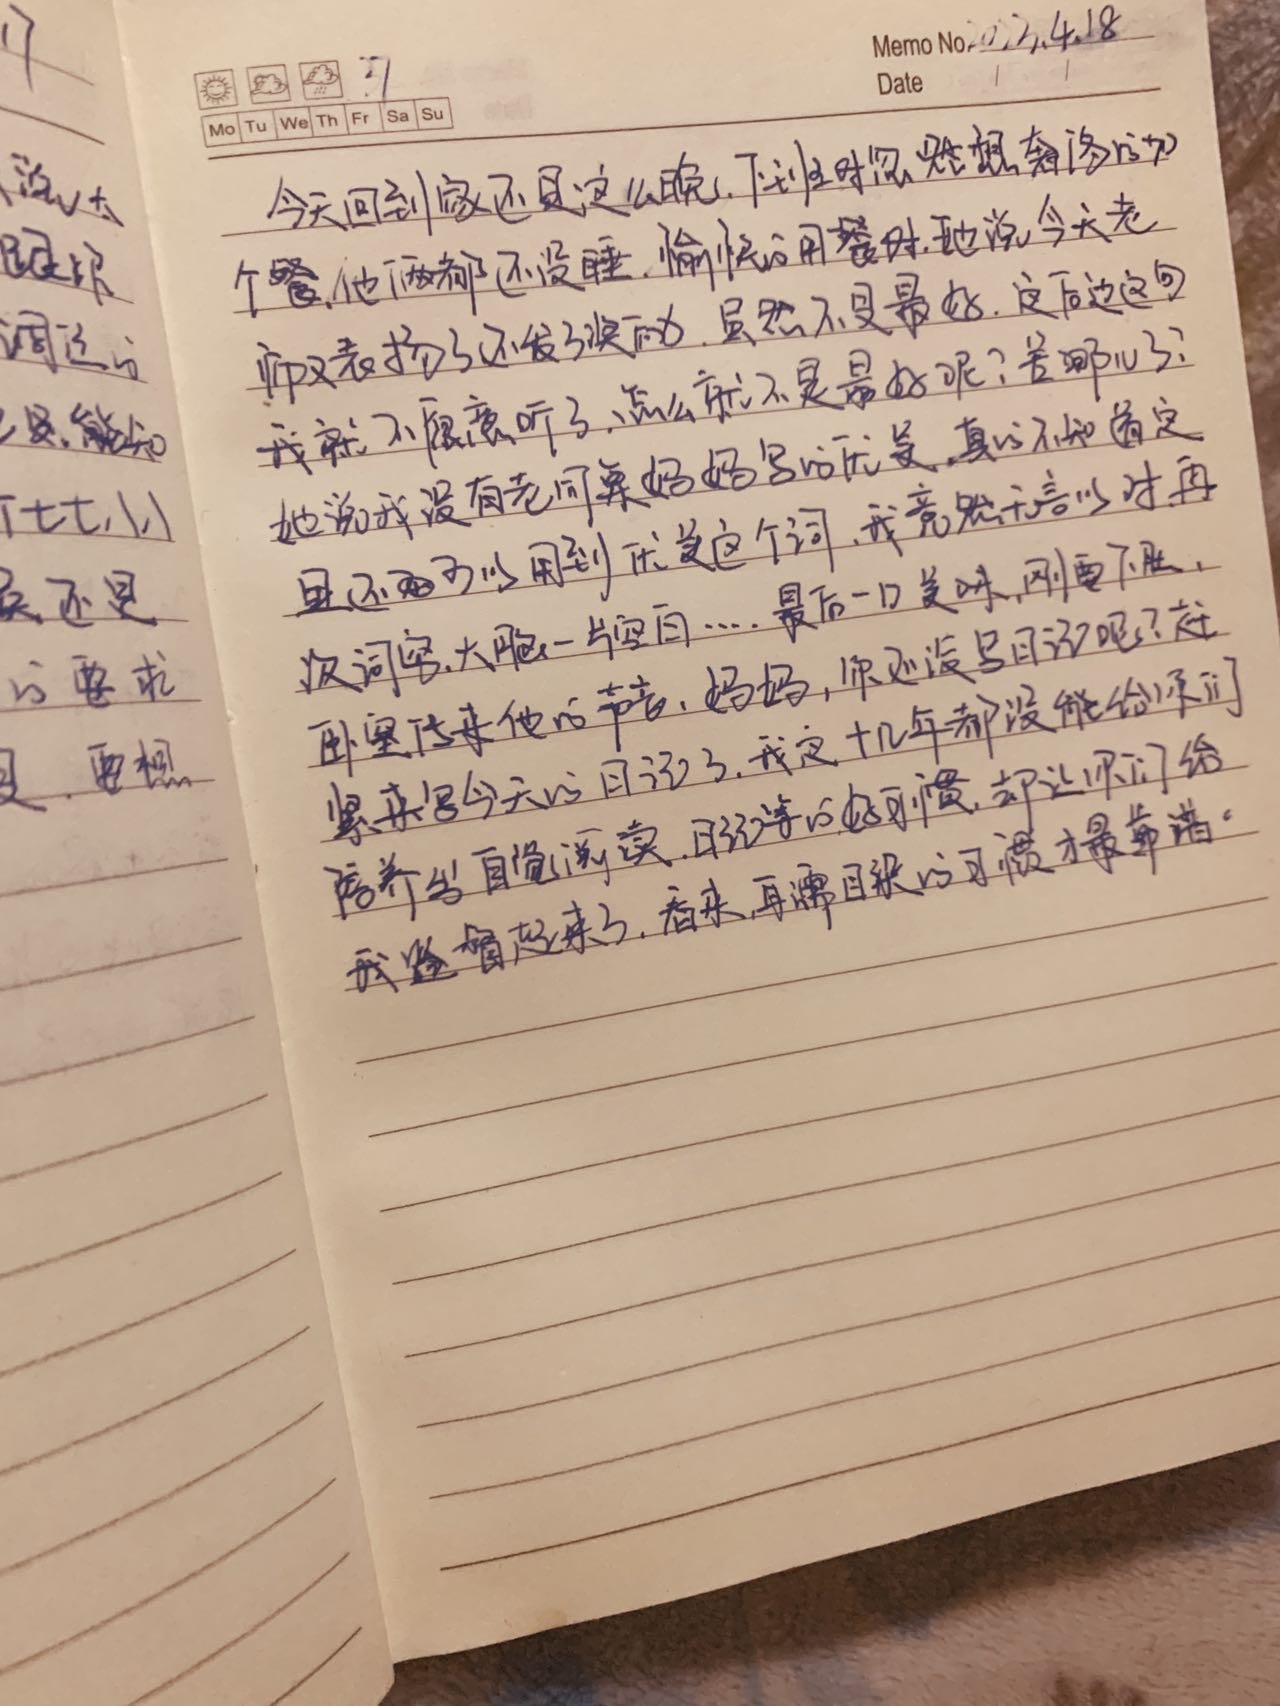 没
的
能知
个七七八八
还是
的要求
要想
Memo No. 2023.4.18
Date
Mo Tu We Th Fr Sa Su
今天回到家还是这么晚、下班时忽然想奢侈的加
个餐,他俩都还没睡、愉快的用餐时,她说今天老
师又表扬了还发了奖励、虽然不是最好、这后边这句
我就不愿意听了、怎么就不是最好呢?差哪儿了?
她说我没有老阿某妈妈写的优美,真的不知道这
里还可以用到优美这个词、我竟然无言以对,再
次词穷、大脑一片空白……最后一口美味,刚要下肚、
卧室传来他的声音、妈妈,你还没写日记呢?赶
紧来写今天的日记了、我这十几年都没能给你们
陪养出自觉阅读、日记等的好习惯,却让你们给
我监督起来了、看来,耳濡目染的习惯才最靠谱。